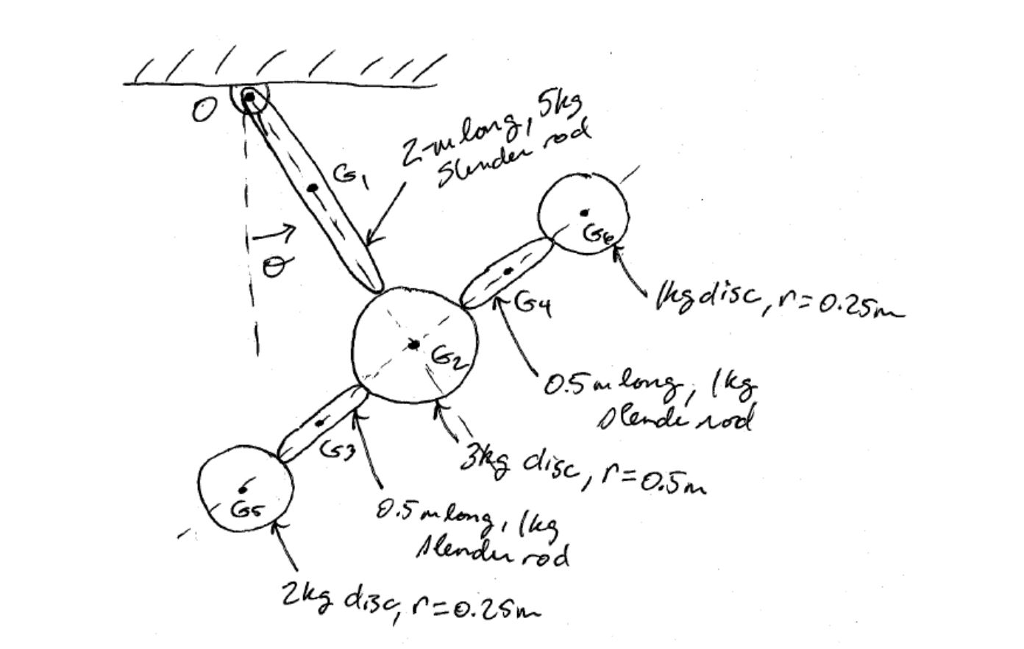 O
G1
2-m long, 5kg
slender rod
θ
G6
G4
1kg disc, r=0.25m
G2
0.5 m long, 1kg
slende rod
G3
3kg disc, r=0.5m
G5
0.5 m long, 1kg
slender rod
2kg disc, r=0.25m